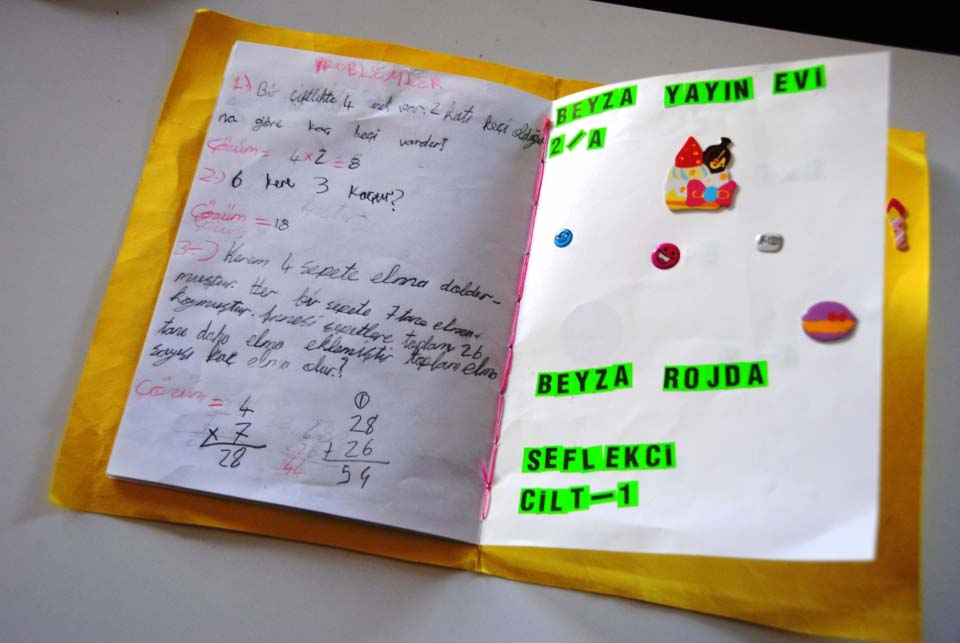 PROBLEMLER
1-) Bir çiftlikte 4 inek var. 2 katı keçi olduğu
na göre kaç keçi vardır?
Çözüm = 4 x 2 = 8
2-) 6 kere 3 kaçtır?
Çözüm = 18
3-) Kerem 4 sepete elma doldur-
muştur. Her bir sepete 7 tane elma
koymuştur. Annesi sepetlere toplam 26
tane daha elma eklemiştir toplam elma
sayısı kaç elma olur?
Çözüm = 4
x 7
28
1
28
+ 26
54
BEYZA YAYIN EVİ
2/A
BEYZA ROJDA
SEFLEKCİ
CİLT-1